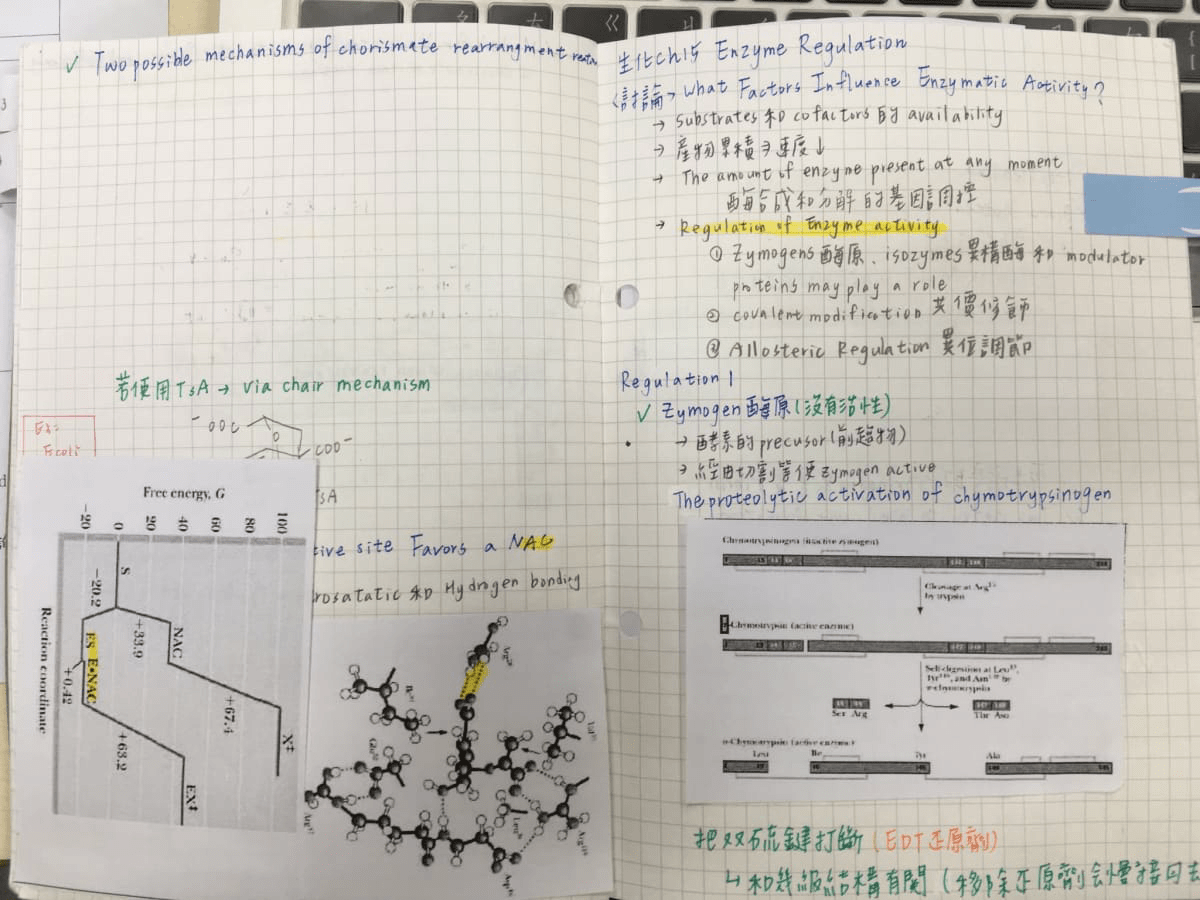 ✓ Two possible mechanisms of chorismate rearrangment
若使用TSA → via chair mechanism
⁻OOC
COO⁻
Ex:
E.coli
SA
tive site Favors a NAC
rosatatic 和 Hydrogen bonding
Free energy, G
100
80
60
40
20
0
−20
S
−20.2
+33.9
NAC
+67.4
X‡
ES E•NAC
+0.42
+63.2
EX‡
Reaction coordinate
生化ch15 Enzyme Regulation
<討論> What Factors Influence Enzymatic Activity?
→ Substrates 和 cofactors 的 availability
→ 產物累積 → 速度↓
→ The amount of enzyme present at any moment
酶合成和分解的基因調控
→ Regulation of Enzyme activity
① Zymogens 酶原、isozymes 異構酶 和 modulator
proteins may play a role
② covalent modification 共價修飾
③ Allosteric Regulation 異位調節
Regulation 1
✓ Zymogen 酶原(沒有活性)
→ 酵素的 precusor (前趨物)
→ 經由切割等使 zymogen active
The proteolytic activation of chymotrypsinogen
Chymotrypsinogen (inactive zymogen)
Cleavage at Arg¹⁵
by trypsin
π-Chymotrypsin (active enzyme)
Self-digestion at Leu¹³,
Tyr¹⁴⁶, and Asn¹⁴⁸ by
π-chymotrypsin
Ser Arg
Thr Asn
α-Chymotrypsin (active enzyme)
Leu Ile Tyr Ala
把双硫鍵打斷 (EDT还原劑)
↳ 和幾級結構有關 (移除还原劑会慢慢接回去